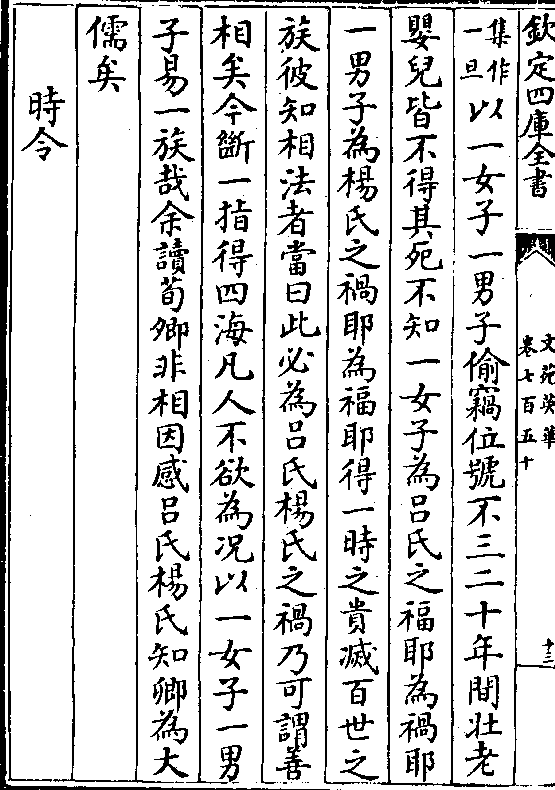 欽定四庫全書
文苑英華
卷七百五十
十三
集作一旦以一女子一男子偷竊位號不三二十年間壯老
嬰兒皆不得其死不知一女子為呂氏之福耶為禍耶
一男子為楊氏之禍耶為福耶得一時之貴滅百世之
族彼知相法者當曰此必為呂氏楊氏之禍乃可謂善
相矣今斷一指得四海凡人不欲為况以一女子一男
子易一族哉余讀荀卿非相因感呂氏楊氏知卿為大
儒矣
時令